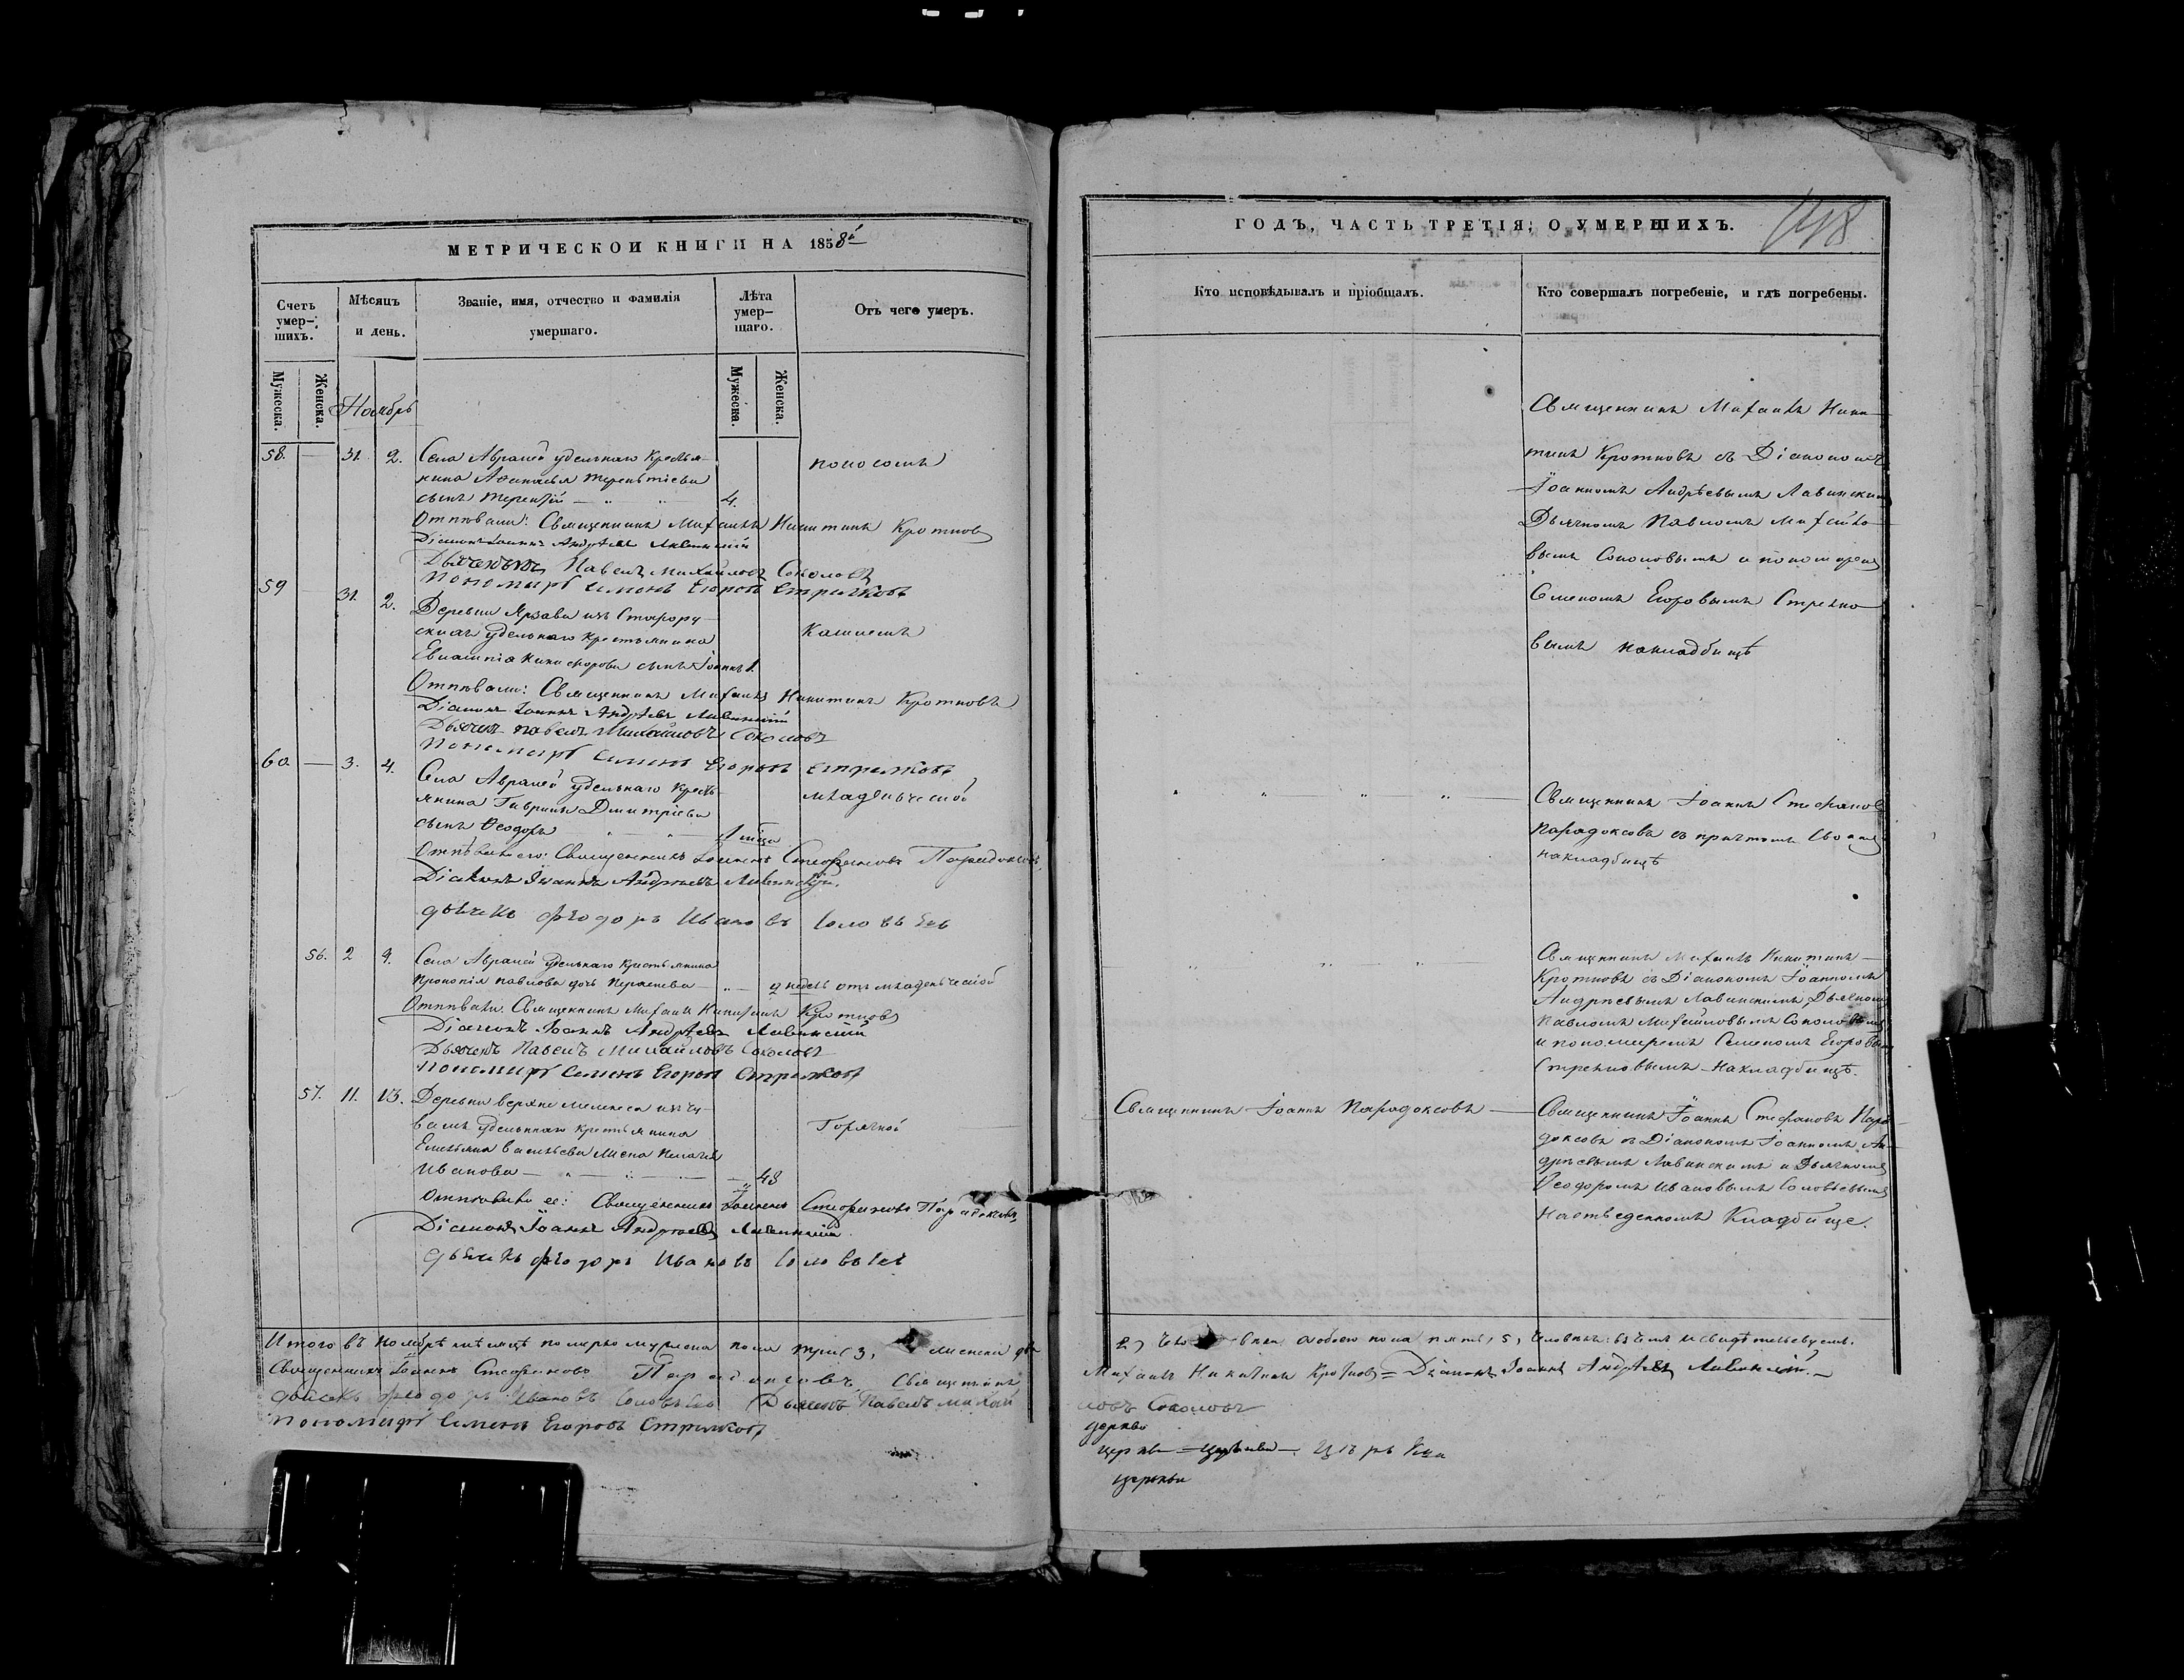 МЕТРИЧЕСКОЙ КНИГИ НА 1858й
Счетъ умер-шихъ.
Мѣсяцъ и день.
Званіе, имя, отчество и фамилія умершаго.
Лѣта умер-шаго.
Отъ чего умеръ.
Мужеска.
Женска.
Мужеска.
Женска.
Ноябрь
58. — 31. 2. Села Авралей удельнаго крестья-
нина Афанасья Терентіева
сынъ Терентій — 4. поносомъ
Отпѣвали: Священникъ Михаилъ Никитинъ Кротковъ
Діаконъ Іоаннъ Андреевъ Лавинскій
Дьячекъ Павелъ Михайловъ Соколовъ
Пономарь Семенъ Егоровъ Стрелковъ
59 — 31. 2. Деревни
удельнаго крестьянина
сынъ Іоаннъ 1. Кашлемъ
Отпѣвали: Священникъ Михаилъ Никитинъ Кротковъ
Діаконъ Іоаннъ Андреевъ Лавинскій
Дьячекъ Павелъ Михайловъ Соколовъ
Пономарь Семенъ Егоровъ Стрелковъ
60. — 3. 4. Села Авралей удельнаго кресть-
янина Гаврила Дмитріева
сынъ Феодоръ младенческой
Отпѣвали его: Священникъ Іоаннъ Стефановъ Парадоксовъ
Діаконъ Іоаннъ Андреевъ Лавинскій.
дьячекъ Феодоръ Ивановъ Соловьевъ
56. 2 4. Села Авралей удельнаго крестьянина
Прокопія Павлова дочь отъ младенческой
Отпѣвали. Священникъ Михаилъ Никитинъ Кротковъ
Діаконъ Іоаннъ Андреевъ Лавинскій
Дьячекъ Павелъ Михайловъ Соколовъ
Пономарь Семенъ Егоровъ Стрелковъ
57. 11. 13. Деревни
удельнаго крестьянина
Емельяна Васильева жена Пелагея
Иванова — 48 Горячкой
Отпѣвали ее: Священникъ Іоаннъ Стефановъ Парадоксовъ
Діаконъ Іоаннъ Андреевъ Лавинскій
дьячекъ Феодоръ Ивановъ Соловьевъ
Итого въ Ноябрѣ мѣсяцѣ померло мужеска пола три 3, женска
Священникъ Іоаннъ Стефановъ Парадоксовъ Священникъ
дьячекъ Феодоръ Ивановъ Соловьевъ Дьячекъ Павелъ Михай
Пономарь Семенъ Егоровъ Стрелковъ
ГОДЪ, ЧАСТЬ ТРЕТІЯ, О УМЕРШИХЪ.
148
Кто исповѣдывалъ и пріобщалъ.
Кто совершалъ погребеніе, и гдѣ погребены.
Священникъ Михаилъ Ники-
тинъ Кротковъ съ Діакономъ
Іоанномъ Андреевымъ Лавинскимъ
Дьячкомъ Павломъ Михайло-
вымъ Соколовымъ и пономаремъ
Семеномъ Егоровымъ Стрелко-
вымъ на кладбищѣ
Священникъ Іоаннъ Стефановъ
Парадоксовъ съ причтомъ своимъ
на кладбищѣ
Священникъ Михаилъ Никитинъ
Кротковъ съ Діакономъ Іоанномъ
Андреевымъ Лавинскимъ Дьячкомъ
Павломъ Михайловымъ Соколовымъ
и пономаремъ Семеномъ Егоровымъ
Стрелковымъ на кладбищѣ.
Священникъ Іоаннъ Парадоксовъ —
Священникъ Іоаннъ Стефановъ Пара-
доксовъ съ Діакономъ Іоанномъ Ан-
дреевымъ Лавинскимъ и Дьячкомъ
Феодоромъ Ивановымъ Соловьевымъ
на отведенномъ Кладбище.
2, обоего пола пять, 5, человекъ въ чемъ и свидѣтельствуемъ.
Михаилъ Никитинъ Кротковъ = Діаконъ Іоаннъ Андреевъ Лавинскій. —
ловъ Соколовъ
церкви